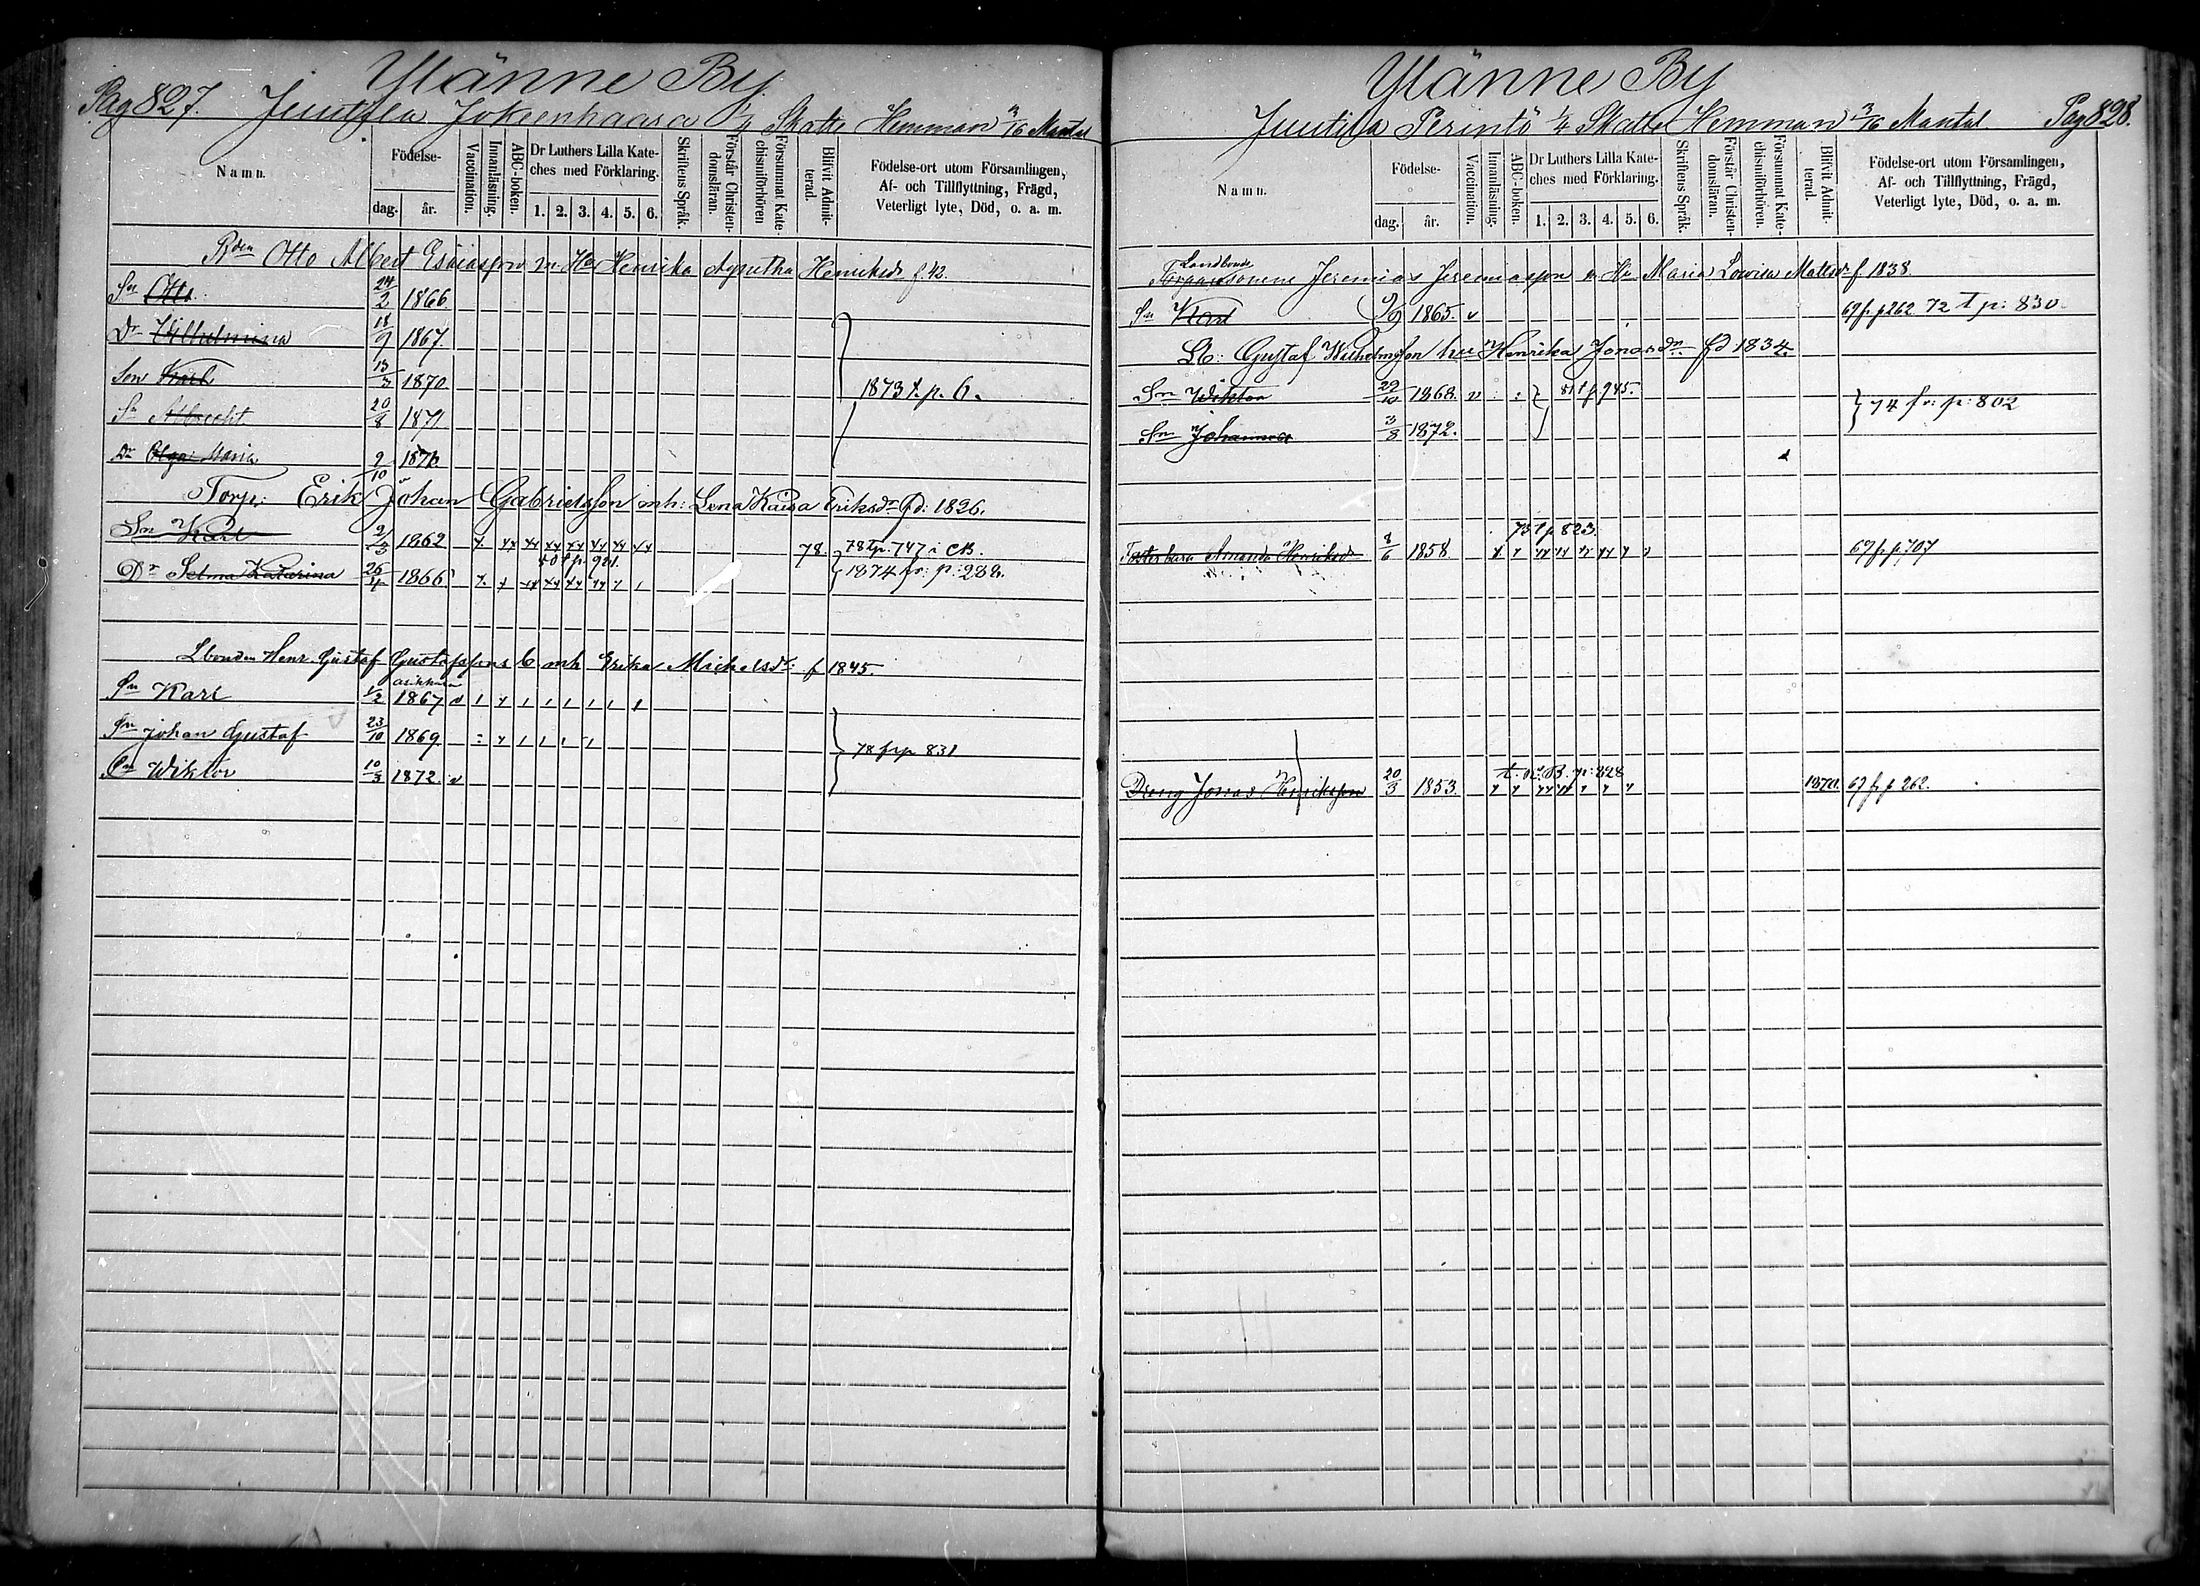 Pag 827. Yläne By
Juutila Jokeenhaara 1/4 Skatte Hemman 3/16 Mantal
Namn.
Födelse-
dag. år.
Vaccination.
Innanläsning.
ABC-boken.
Dr Luthers Lilla Kate-
ches med Förklaring.
1. 2. 3. 4. 5. 6.
Skriftens Språk.
Förstår Christen-
domsläran.
Försummat Kate-
chismiförhören
Blifvit Admit-
terad.
Födelse-ort utom Församlingen,
Af- och Tillflyttning, Frägd,
Veterligt lyte, Död, o. a. m.
Otto Albert Esaiasson m. Hu Henrika Agnetha Henriksdr f. 42.
Sn Otto 24/2 1866
Dr Wilhelmina 18/9 1867
Son Karl 13/3 1870
1873 t. p. 6.
Sn Albrecht 20/8 1871
Dr Olga Maria 9/10
Torp: Erik Johan Gabrielsson mh: Lena Kaisa Eriksdr fd: 1826.
Sn Karl 1862 78. 78 t p. 747 i CB.
Dr Selma Katarina 26/4 1866 1874 fr: p: 288.
Lbonden Henr. Gustaf Gustafsson mh Erika Michelsdr: f 1845.
Sn Karl 1/2 1867
Sn Johan Gustaf 23/10 1869
78 fr p 831
Sn Wiktor 10/3 1872.
Yläne By
Juutila Perintö 1/4 Skatte Hemman 3/16 Mantal. Pag 828.
Namn.
Födelse-
dag. år.
Vaccination.
Innanläsning.
ABC-boken.
Dr Luthers Lilla Kate-
ches med Förklaring.
1. 2. 3. 4. 5. 6.
Skriftens Språk.
Förstår Christen-
domsläran.
Försummat Kate-
chismiförhören.
Blifvit Admit-
terad.
Födelse-ort utom Församlingen,
Af- och Tillflyttning, Frägd,
Veterligt lyte, Död, o. a. m.
Landbond
Jeremias Jeremiasson m Hu Maria Lovisa Matsdr f 1838.
Sn Karl 9/9 1865. 69 fr p 262 72 t p: 830
Lb: Gustaf Wilhelmsson hu Henrika Jonasdr fd 1834.
Sn Wiktor 29/10 1868. 81 t p 945.
74 fr: p: 802
Sn Johannes 3/8 1872.
73 t p 823.
Amanda Henriksdr 8/6 1858 67 fr p. 707
p: 828
Dreng Jonas Henriksson 20/3 1853 1870. 67 fr p 262.